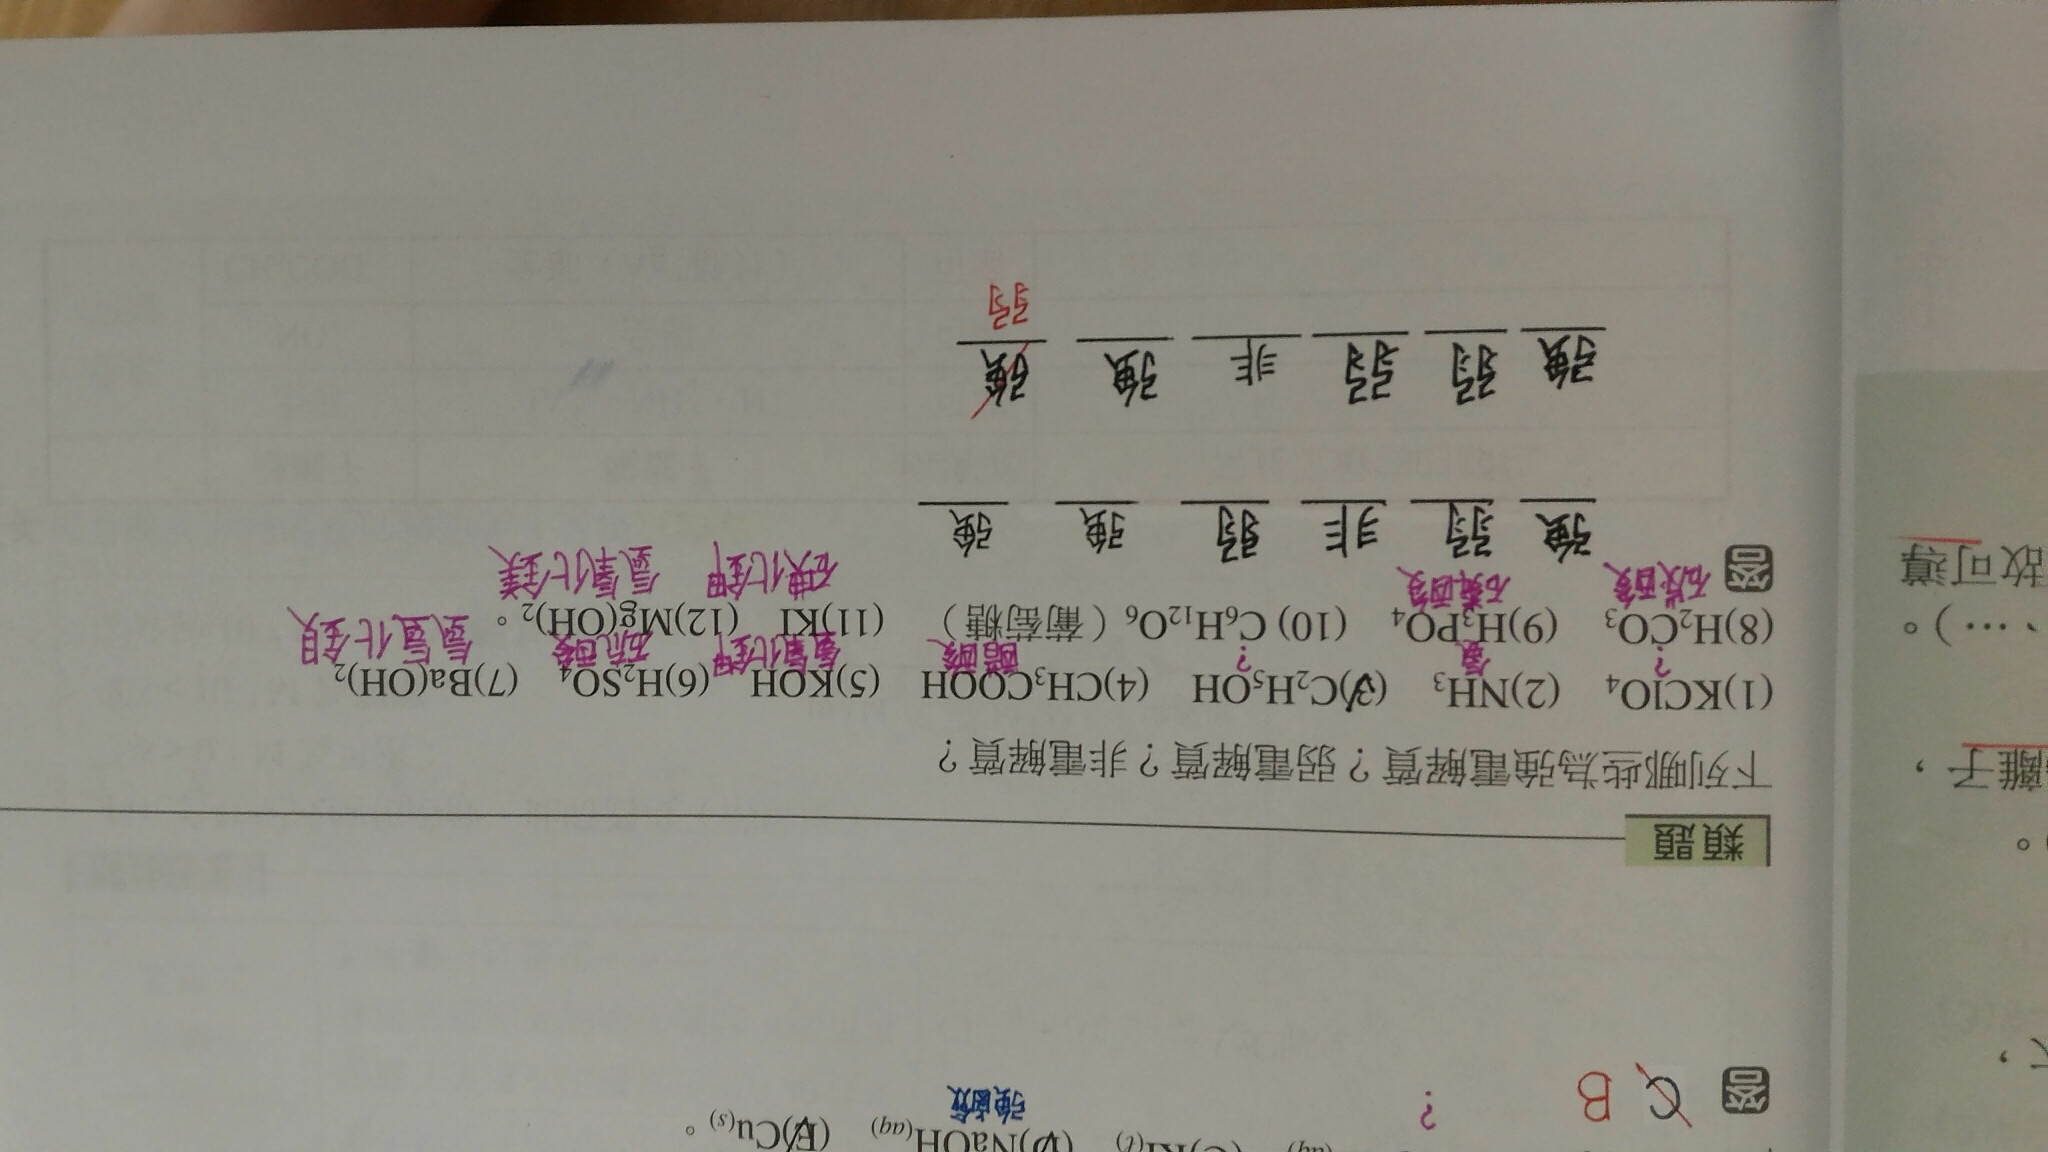 (aq) (C)KI(ℓ) (D)NaOH(aq) (E)Cu(s)。
強鹼
答 C B ?
類題
下列哪些為強電解質？弱電解質？非電解質？
(1)KClO₄ (2)NH₃ (3)C₂H₅OH (4)CH₃COOH (5)KOH (6)H₂SO₄ (7)Ba(OH)₂
? 氨 ? 醋酸 氫氧化鉀 硫酸 氫氧化鋇
(8)H₂CO₃ (9)H₃PO₄ (10) C₆H₁₂O₆（葡萄糖） (11)KI (12)Mg(OH)₂。
碳酸 磷酸 碘化鉀 氫氧化鎂
答
強 弱 非 弱 強 強
強 弱 弱 非 強 強
弱
離子，
、…）。
故可導